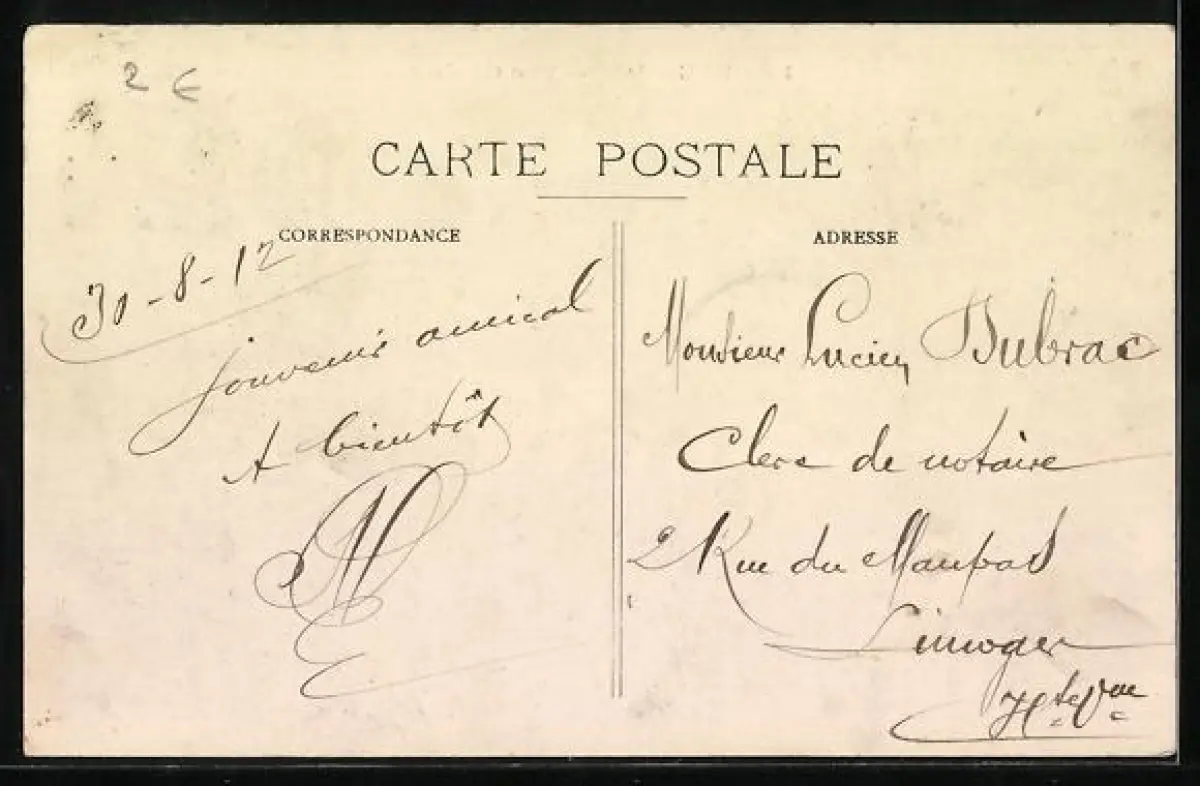 2 €
CARTE POSTALE
CORRESPONDANCE
30-8-12
Souvenir amical
A bientôt
ADRESSE
Monsieur Lucien Dubrac
Clerc de notaire
2 Rue du Maupas
Limoges
Hte Vne